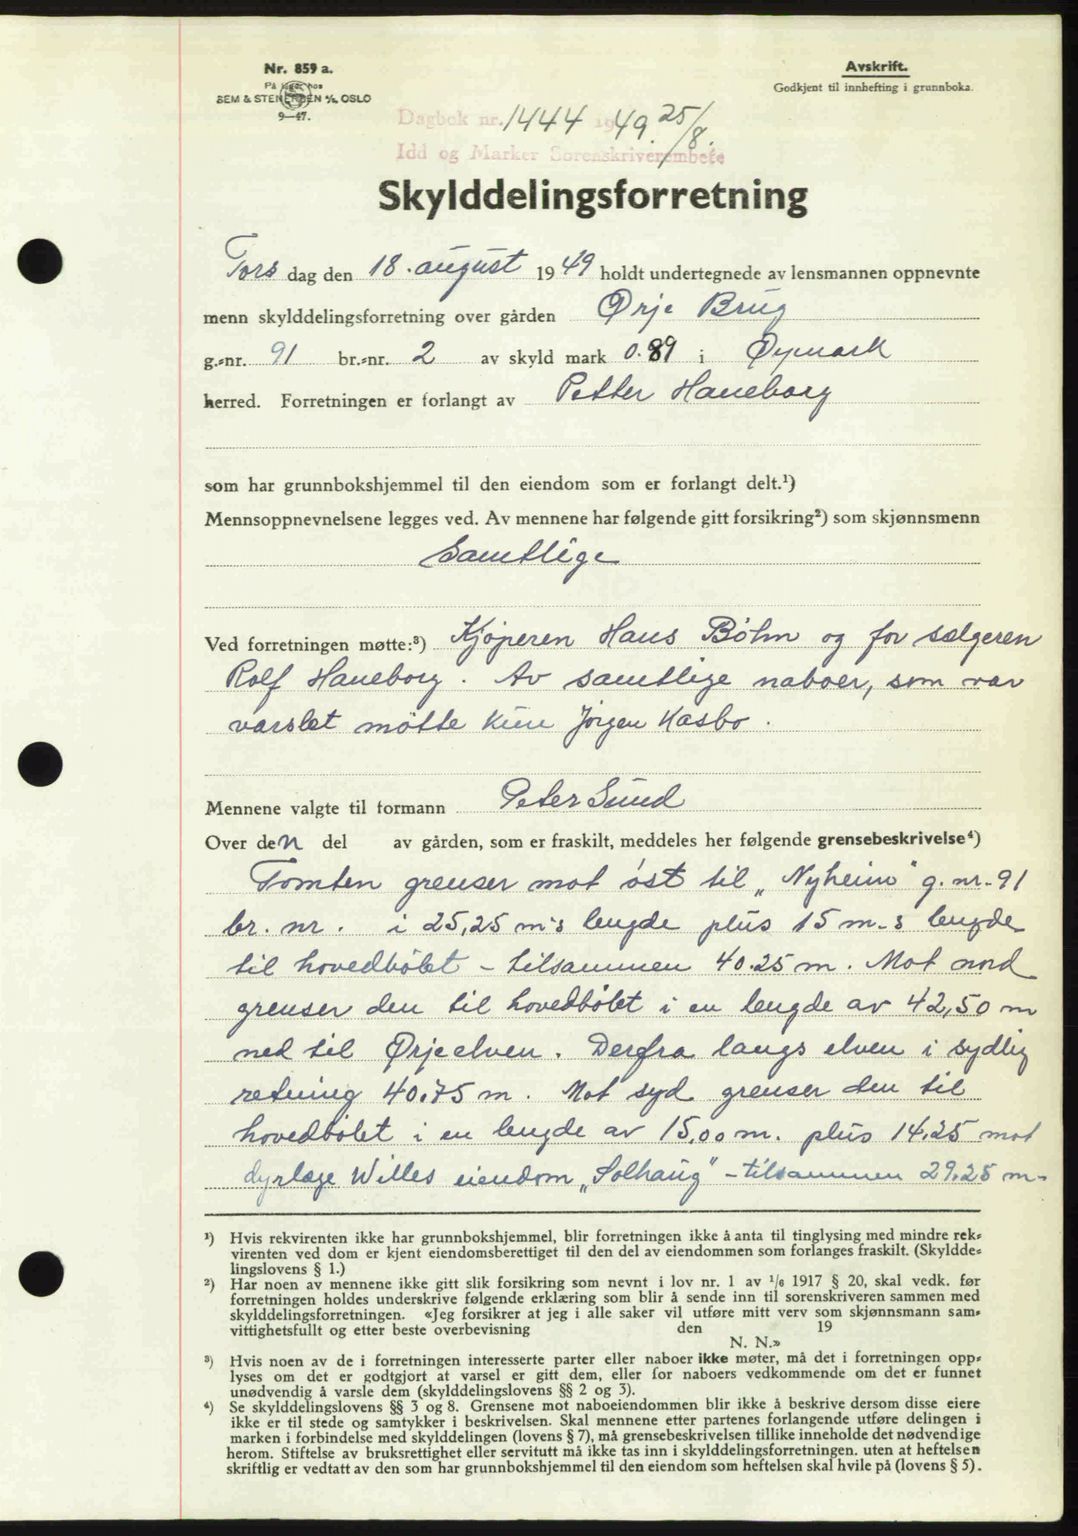 Nr. 859 a.
På lager hos
SEM & STENERSEN A/S, OSLO
9—47.
Avskrift.
Godkjent til innhefting i grunnboka.
Dagbok nr. 1444 1949. 25/8.
Idd og Marker Sorenskriverembete
Skylddelingsforretning
Tors dag den 18. august 1949 holdt undertegnede av lensmannen oppnevnte
menn skylddelingsforretning over gården Ørje Brug
g.-nr. 91 br.-nr. 2 av skyld mark 0.89 i Øymark
herred. Forretningen er forlangt av Petter Haneborg
som har grunnbokshjemmel til den eiendom som er forlangt delt.¹)
Mennsoppnevnelsene legges ved. Av mennene har følgende gitt forsikring²) som skjønnsmenn
Samtlige
Ved forretningen møtte:³) Kjøperen Hans Bøhm og for sælgeren
Rolf Haneborg. Av samtlige naboer, som var
varslet møtte kun Jörgen Kasbo.
Mennene valgte til formann Peter Sund
Over den del av gården, som er fraskilt, meddeles her følgende grensebeskrivelse⁴)
Tomten grenser mot øst til „Nyheim" g. nr. 91
br. nr. i 25,25 m's lengde plus 15 m-s lengde
til hovedbölet - tilsammen 40.25 m. Mot nord
grenser den til hovedbölet i en lengde av 42,50 m
ned til Ørjeelven. Derfra langs elven i sydlig
retning 40.75 m. Mot syd grenser den til
hovedbölet i en lengde av 15,00 m. plus 14.25 mot
dyrlæge Willes eiendom „Solhaug" - tilsammen 29.25 m-
¹) Hvis rekvirenten ikke har grunnbokshjemmel, blir forretningen ikke å anta til tinglysing med mindre rek-
virenten ved dom er kjent eiendomsberettiget til den del av eiendommen som forlanges fraskilt. (Skyldde-
lingslovens § 1.)
²) Har noen av mennene ikke gitt slik forsikring som nevnt i lov nr. 1 av 1/6 1917 § 20, skal vedk. før
forretningen holdes underskrive følgende erklæring som blir å sende inn til sorenskriveren sammen med
skylddelingsforretningen. «Jeg forsikrer at jeg i alle saker vil utføre mitt verv som skjønnsmann sam-
vittighetsfullt og etter beste overbevisning den 19
N. N.»
³) Hvis noen av de i forretningen interesserte parter eller naboer ikke møter, må det i forretningen opp-
lyses om det er godtgjort at varsel er gitt dem, eller for naboers vedkommende om det er funnet
unødvendig å varsle dem (skylddelingslovens §§ 2 og 3).
⁴) Se skylddelingslovens §§ 3 og 8. Grensene mot naboeiendommen blir ikke å beskrive dersom disse eiere
ikke er til stede og samtykker i beskrivelsen. Skal mennene etter partenes forlangende utføre delingen i
marken i forbindelse med skylddelingen (lovens § 7), må grensebeskrivelsen tillike inneholde det nødvendige
herom. Stiftelse av bruksrettighet eller servitutt må ikke tas inn i skylddelingsforretningen, uten at heftelsen
skriftlig er vedtatt av den som har grunnbokshjemmel til den eiendom som heftelsen skal hvile på (lovens § 5).